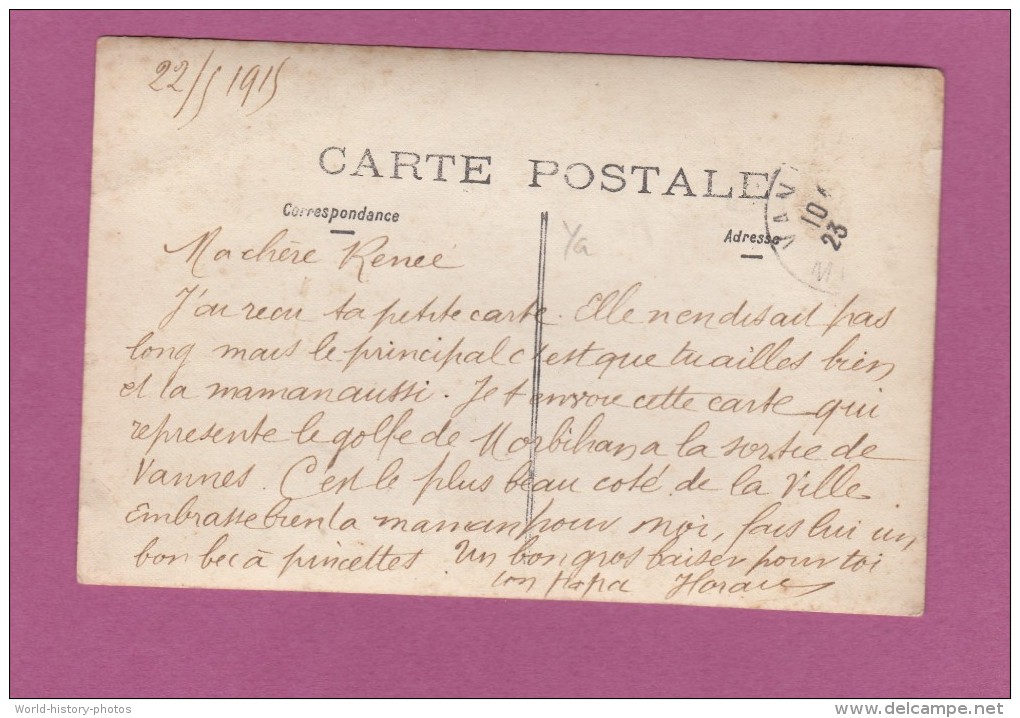 22/5 1915
CARTE POSTALE
Correspondance
Adresse
VAN
10
23
M
Ya
Ma chère Renée
J'ai recu ta petite carte. Elle n'en disait pas
long mais le principal c'est que tu ailles bien
et la maman aussi. Je t'envoie cette carte qui
represente le golfe de Morbihan a la sortie de
Vannes. C'est le plus beau coté de la Ville
Embrasse bien ta maman pour moi, fais lui un
bon bec à pincettes. Un bon gros baiser pour toi
ton Papa
World-history-photos
delcampe.net